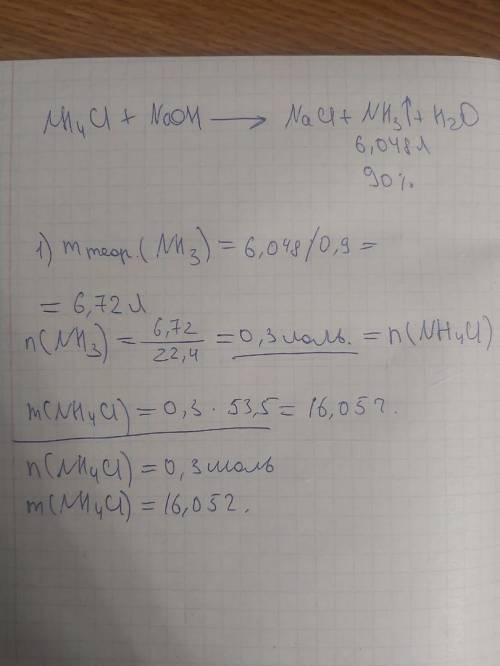 NH₄Cl + NaOH ⟶ NaCl + NH₃↑ + H₂O
6,048 л
90%
1) m теор.(NH₃) = 6,048/0,9 =
= 6,72 л
n(NH₃) = 6,72/22,4 = 0,3 моль. = n(NH₄Cl)
m(NH₄Cl) = 0,3 · 53,5 = 16,05 г.
n(NH₄Cl) = 0,3 моль
m(NH₄Cl) = 16,05 г.